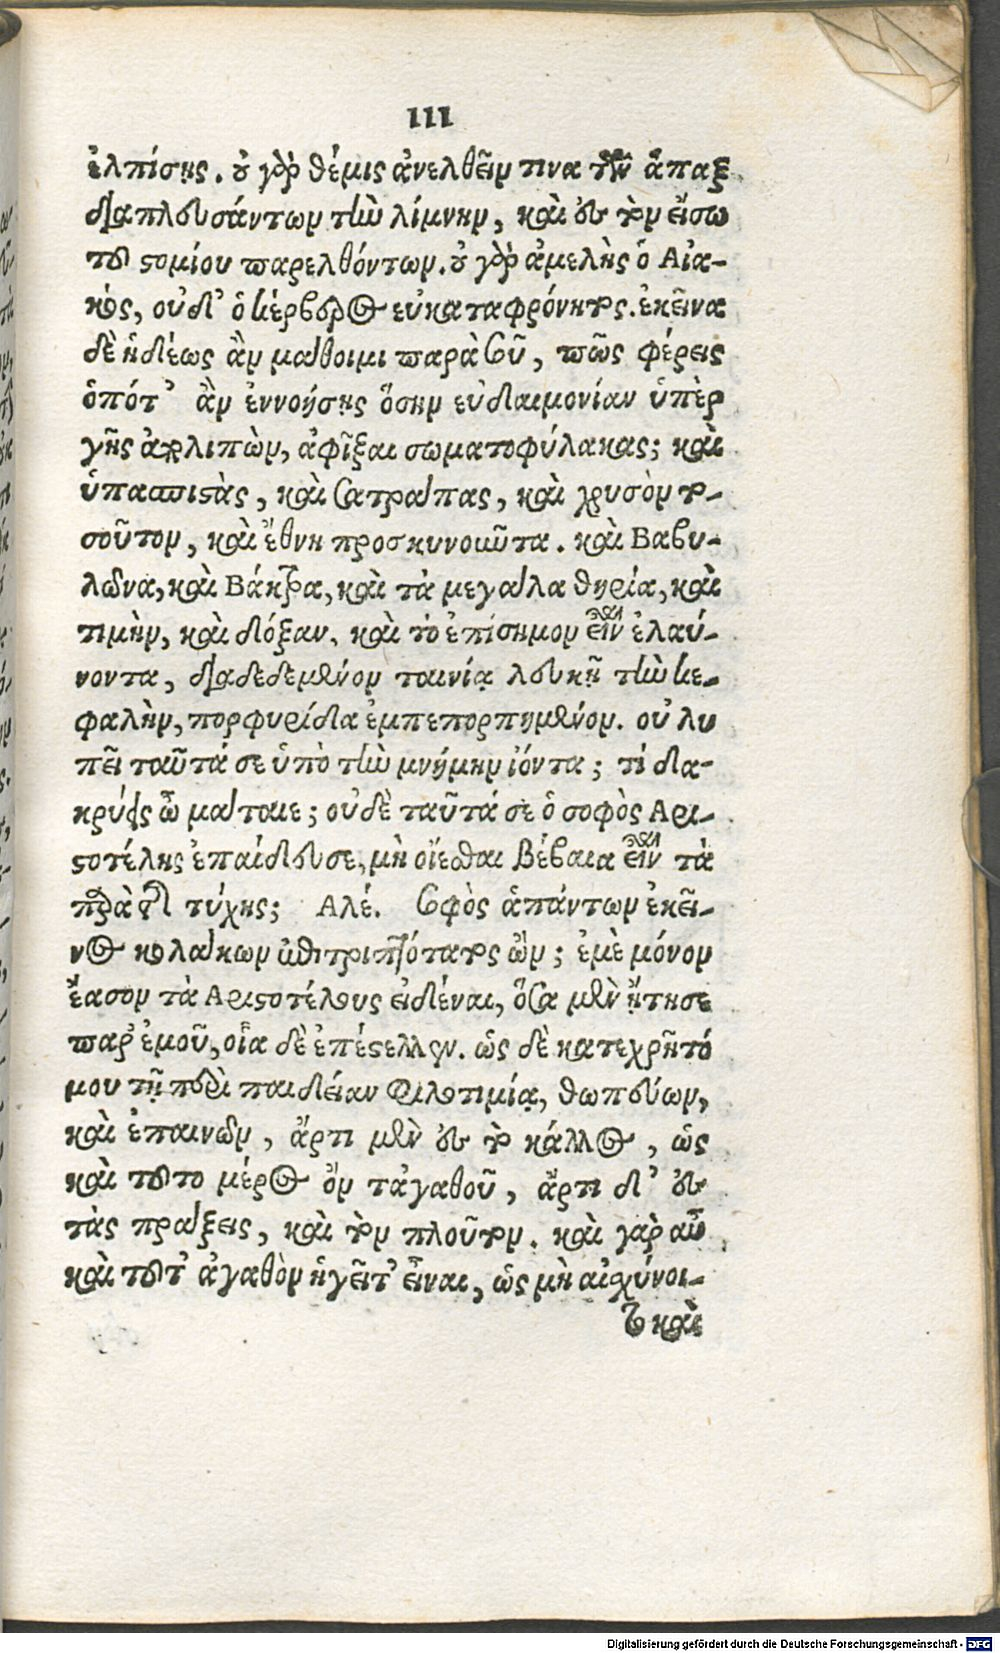 111
ἐλπίσῃς. οὐ γὰρ θέμις ἀνελθεῖν τινα τῶν ἅπαξ
διαπλευσάντων τὴν λίμνην, καὶ ἐς τὸ εἴσω
τοῦ στομίου παρελθόντων. οὐ γὰρ ἀμελὴς ὁ Αἰα-
κός, οὐδ' ὁ κέρβερος εὐκαταφρόνητος. ἐκεῖνα
δὲ ἡδέως ἂν μάθοιμι παρὰ σοῦ, πῶς φέρεις
ὁπότ' ἂν ἐννοήσῃς ὅσην εὐδαιμονίαν ὑπὲρ
γῆς ἀπολιπὼν, ἀφῖξαι σωματοφύλακας; καὶ
ὑπασπιστὰς, καὶ σατράπας, καὶ χρυσὸν το-
σοῦτον, καὶ ἔθνη προσκυνοῦντα. καὶ Βαβυ-
λῶνα, καὶ Βάκτρα, καὶ τὰ μεγάλα θηρία, καὶ
τιμὴν, καὶ δόξαν, καὶ τὸ ἐπίσημον εἶναι ἐλαύ-
νοντα, διαδεδεμένον ταινίᾳ λευκῇ τὴν κε-
φαλὴν, πορφυρίδα ἐμπεπορπημένον. οὐ λυ
πεῖ ταῦτά σε ὑπὸ τὴν μνήμην ἰόντα; τί δα-
κρύεις ὦ μάταιε; οὐδὲ ταῦτά σε ὁ σοφὸς Αρι-
στοτέλης ἐπαίδευσε, μὴ οἴεσθαι βέβαια εἶναι τὰ
παρὰ τῆς τύχης; Αλέ. Σοφὸς ἁπάντων ἐκεῖ-
νος κολάκων ἐπιτριπτότατος ὤν; ἐμὲ μόνον
ἔασον τὰ Αριστοτέλους εἰδέναι, ὅσα μὲν ᾔτησε
παρ' ἐμοῦ, οἷα δὲ ἐπέστελλεν. ὡς δὲ κατεχρῆτό
μου τῇ περὶ παιδείαν φιλοτιμίᾳ, θωπεύων,
καὶ ἐπαινῶν, ἄρτι μὲν ἐς τὸ κάλλος, ὡς
καὶ τοῦτο μέρος ὂν τἀγαθοῦ, ἄρτι δ' ἐς
τὰς πράξεις, καὶ τὸν πλοῦτον. καὶ γὰρ αὖ
καὶ τοῦτ' ἀγαθὸν ἡγεῖτ' εἶναι, ὡς μὴ αἰσχύνοι-
το καὶ
Digitalisierung gefördert durch die Deutsche Forschungsgemeinschaft - DFG